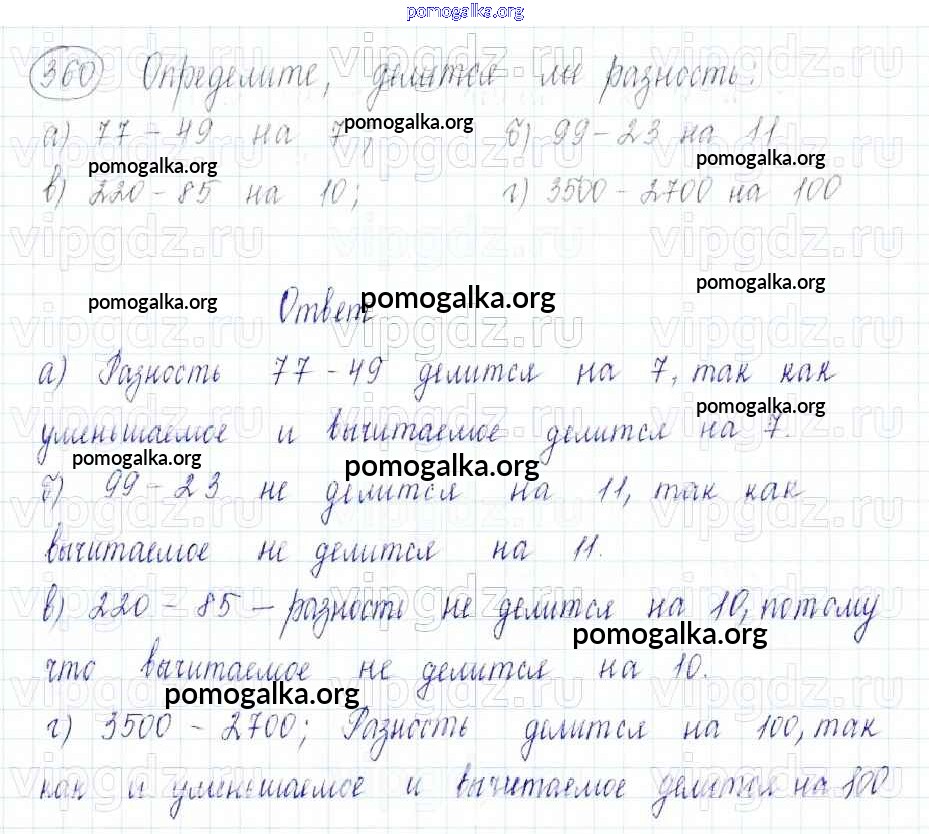 pomogalka.org
360 Определите, делится ли разность:
а) 77 - 49 на 7, pomogalka.org б) 99 - 23 на 11
pomogalka.org pomogalka.org
в) 220 - 85 на 10; г) 3500 - 2700 на 100
vipgdz.ru vipgdz.ru vipgdz.ru
pomogalka.org Ответ pomogalka.org pomogalka.org
vipgdz.ru vipgdz.ru vipgdz.ru
а) Разность 77 - 49 делится на 7, так как
pomogalka.org
уменьшаемое и вычитаемое делится на 7.
pomogalka.org pomogalka.org
б) 99 - 23 не делится на 11, так как
вычитаемое не делится на 11.
в) 220 - 85 - разность не делится на 10, потому
pomogalka.org
что вычитаемое не делится на 10.
pomogalka.org
г) 3500 - 2700; Разность делится на 100, так
как и уменьшаемое и вычитаемое делится на 100